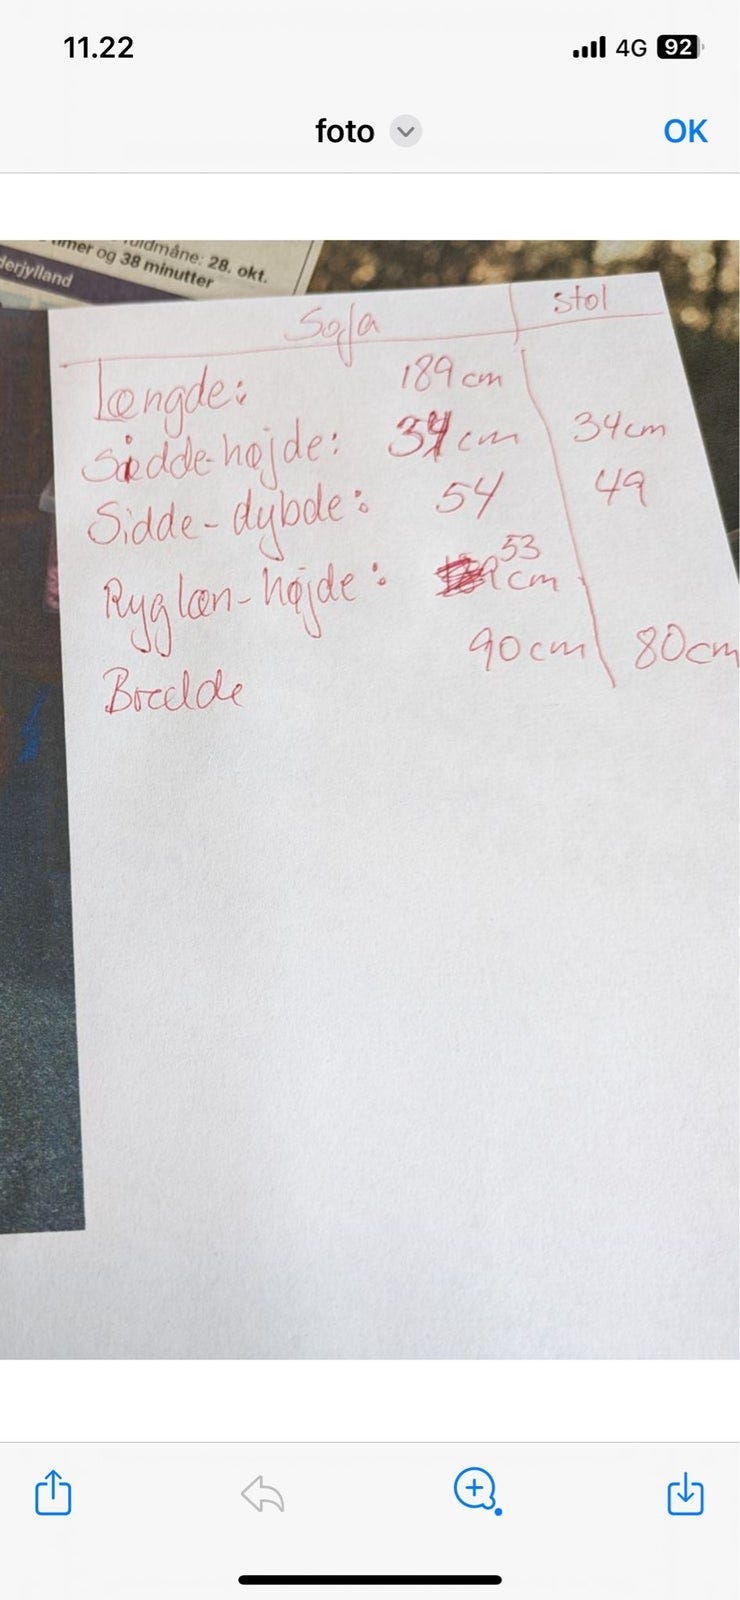 11.22 4G 92
foto OK
uldmåne: 28. okt.
timer og 38 minutter
derjylland
Sofa stol
Længde: 189 cm
Sidde-højde: 34 cm 34 cm
Sidde-dybde: 54 49
Ryglæn-højde: 53 cm
90 cm 80 cm
Bredde